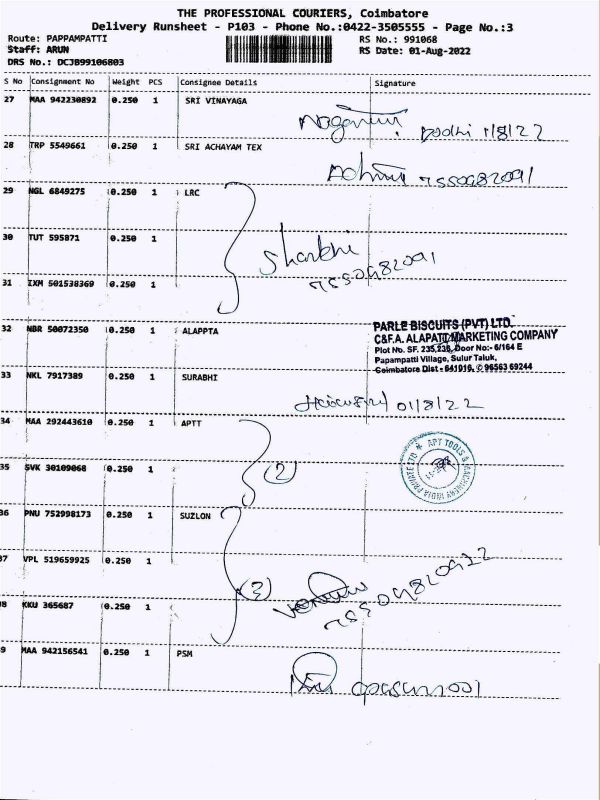 THE PROFESSIONAL COURIERS, Coimbatore
Delivery Runsheet - P103 - Phone No.:0422-3505555 - Page No.:3
Route: PAPPAMPATTI RS No.: 991068
Staff: ARUN RS Date: 01-Aug-2022
DRS No.: DCJB99106803
S No Consignment No Weight PCS Consignee Details Signature
27 MAA 942230892 0.250 1 SRI VINAYAGA
1/8/22
28 TRP 5549661 0.250 1 SRI ACHAYAM TEX
29 NGL 6849275 0.250 1 LRC
30 TUT 595871 0.250 1
31 IXM 501538369 0.250 1
32 NBR 50072350 0.250 1 ALAPPTA
PARLE BISCUITS (PVT) LTD.
C&F.A. ALAPATT MARKETING COMPANY
Plot No. SF. 235,236, Door No:- 6/164 E
Papampatti Village, Sulur Taluk,
Coimbatore Dist - 641016, ✆ 96563 69244
33 NKL 7917389 0.250 1 SURABHI
01/8/22
34 MAA 292443610 0.250 1 APTT
APT TOOLS & MACHINERY INDIA PRIVATE LTD
35 SVK 30109068 0.250 1
(2)
36 PNU 752998173 0.250 1 SUZLON
37 VPL 519659925 0.250 1
(3)
38 KKU 365687 0.250 1
39 MAA 942156541 0.250 1 PSM